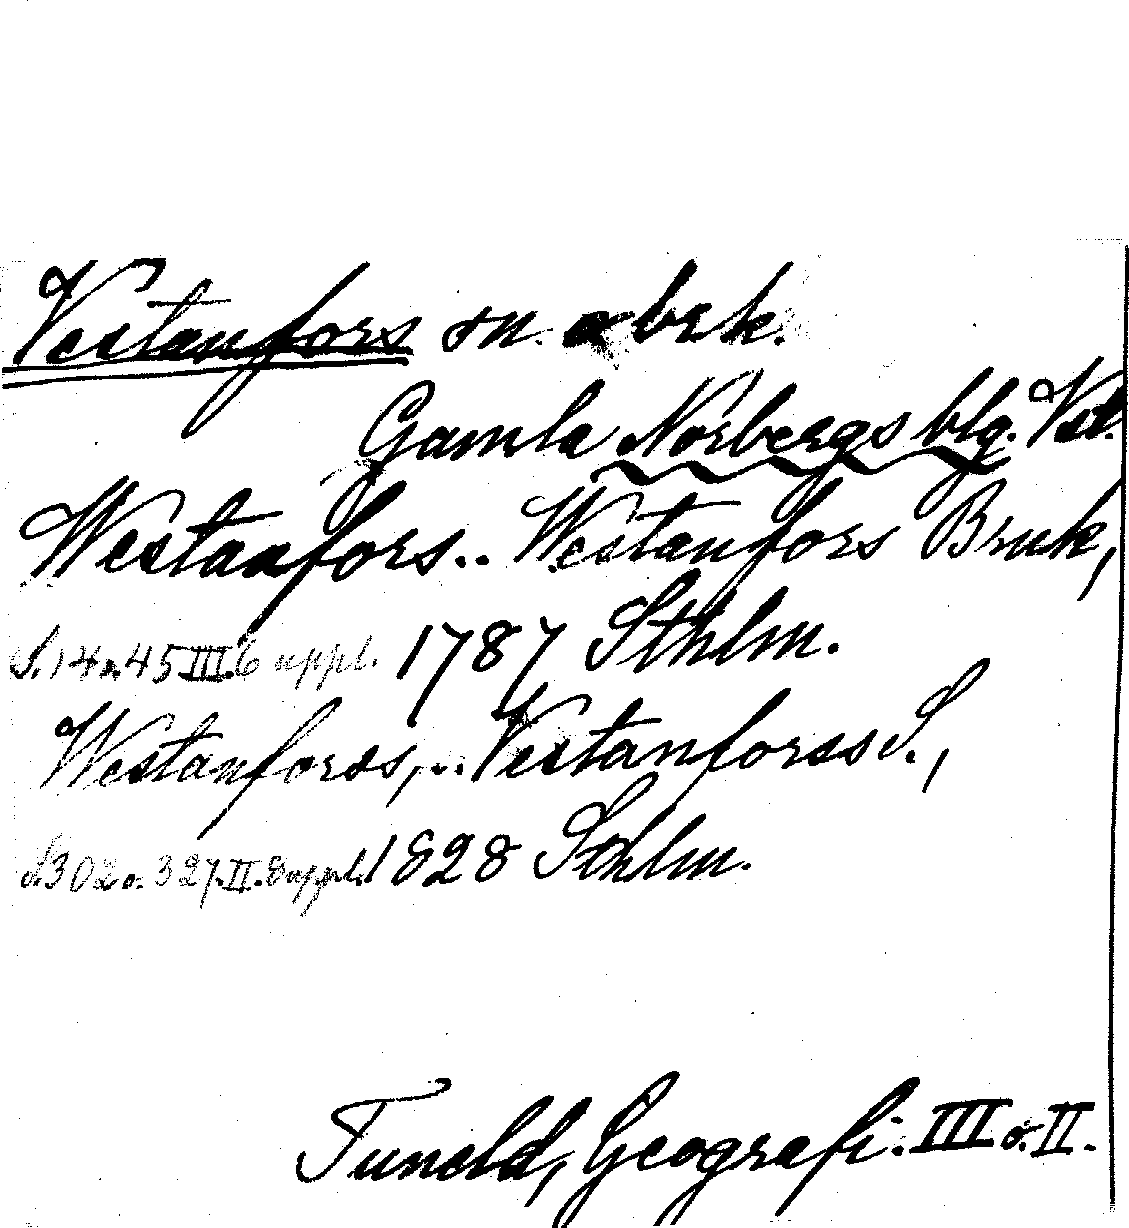 Vestanfors sn. o brk.
Gamla Norbergs blg. Vstl.
Westanfors.. Westanfors Bruk,
S. 14 o. 45 III. 6 uppl. 1787 Sthlm.
Westanforss,... Vestanforss S.,
S. 302 o. 327. II. 8 uppl. 1828 Sthlm.
Tuneld, Geografi. III o. II.